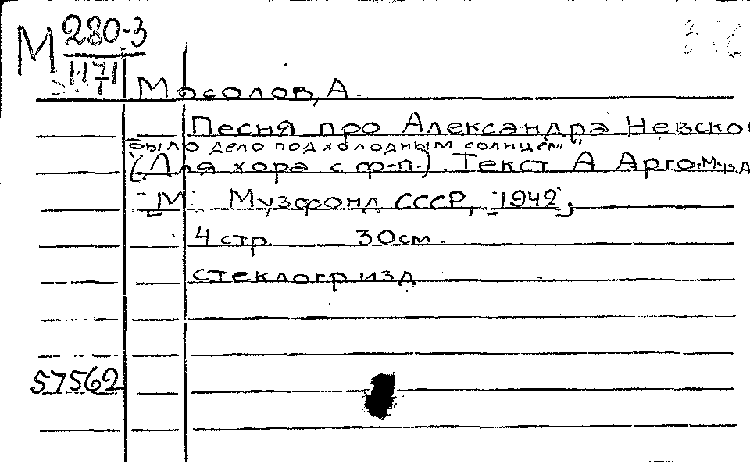 М 280-3
1171
Мосолов, А.
Песня про Александра Невско
"Было дело под холодным солнцем"
(Для хора с ф-п.) Текст А Арго. Муз. А
М. Музфонд СССР, 1942,
4 стр. 30см.
стеклогр. изд
57562